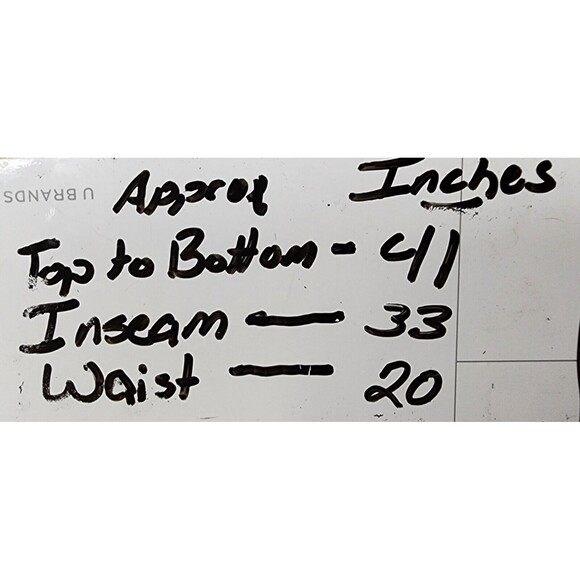 U BRANDS
Approx Inches
Top to Bottom - 41
Inseam — 33
Waist — 20